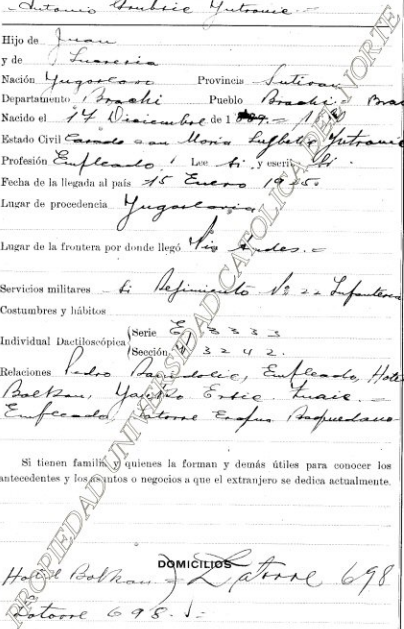 Antonio Yutronic =
Hijo de Juan
y de
Nación Yugoeslavo Provincia Sutivan
Departamento Brachi Pueblo Brachi =
Nacido el 17 Diciembre de 1
Estado Civil Casado con Maria Yutronic
Profesión Empleado Lee Si y escribe Si.
Fecha de la llegada al país 15 Enero 19
Lugar de procedencia Yugoslavia
Lugar de la frontera por donde llegó Los Andes. =
Servicios militares - Si Regimiento Nº 22 Infanteria
Costumbres y hábitos
Individual Dactiloscópica Serie E 3333
Sección 3242.
Relaciones Pedro Empleado, Hotel
Balkan,
Empleado, Latorre Baquedano
Si tienen familia y quienes la forman y demás útiles para conocer los
antecedentes y los asuntos o negocios a que el extranjero se dedica actualmente.
DOMICILIOS
Hotel Balkan = Latorre 698
Latorre 698.
PROPIEDAD UNIVERSIDAD CATOLICA DEL NORTE